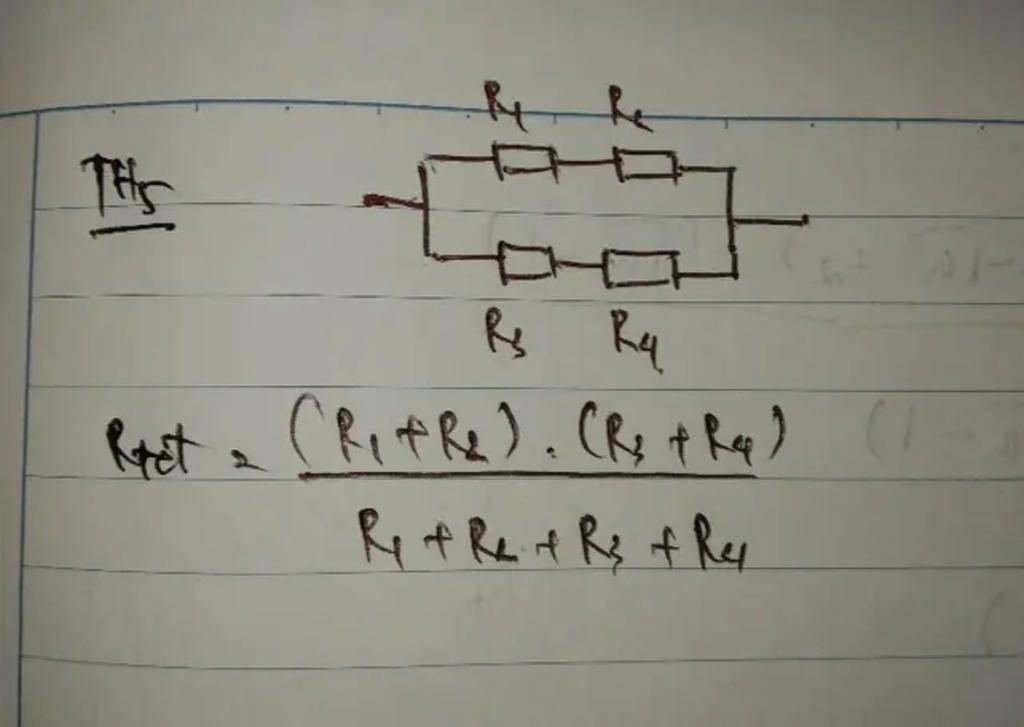 R1 R2
TH5
R3 R4
Rtđ = (R1 + R2) . (R3 + R4)
R1 + R2 + R3 + R4